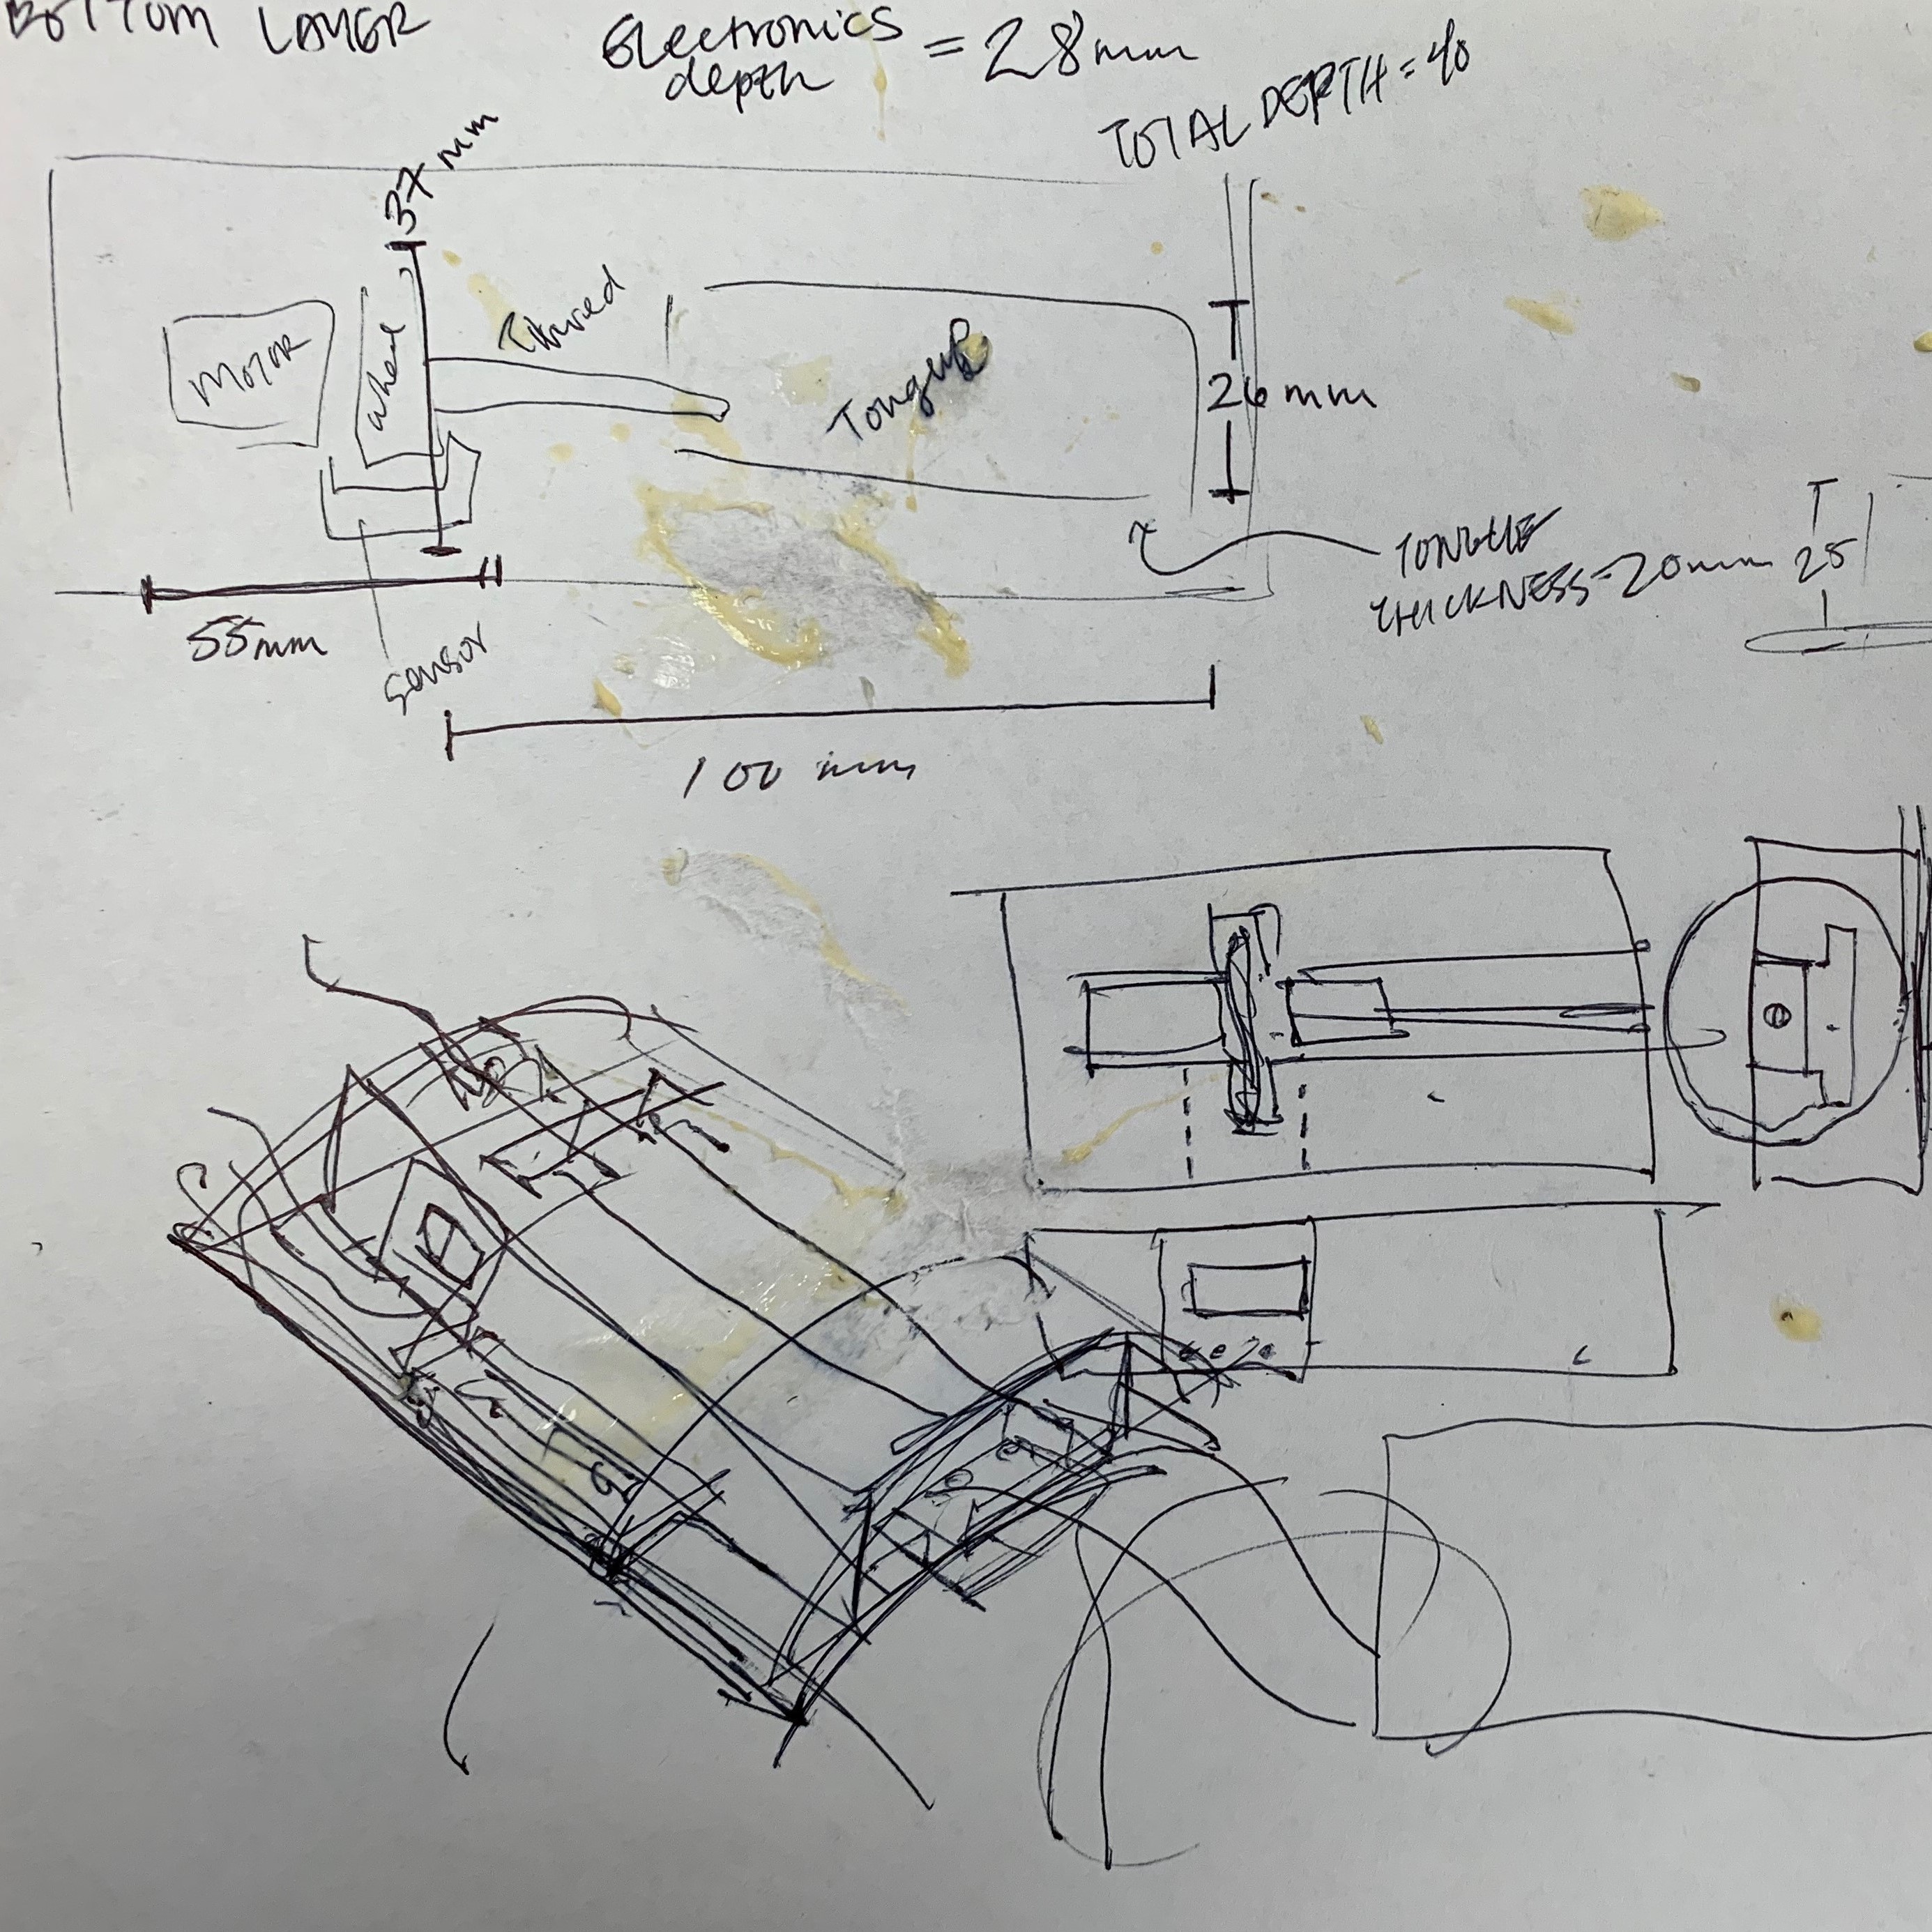 BOTTOM LAYER
Electronics
depth = 28mm
TOTAL DEPTH = 40
37 mm
MOTOR
wheel
Thread
Tongue
26 mm
TONGUE
THICKNESS = 20mm
25
55mm
sensor
100 mm